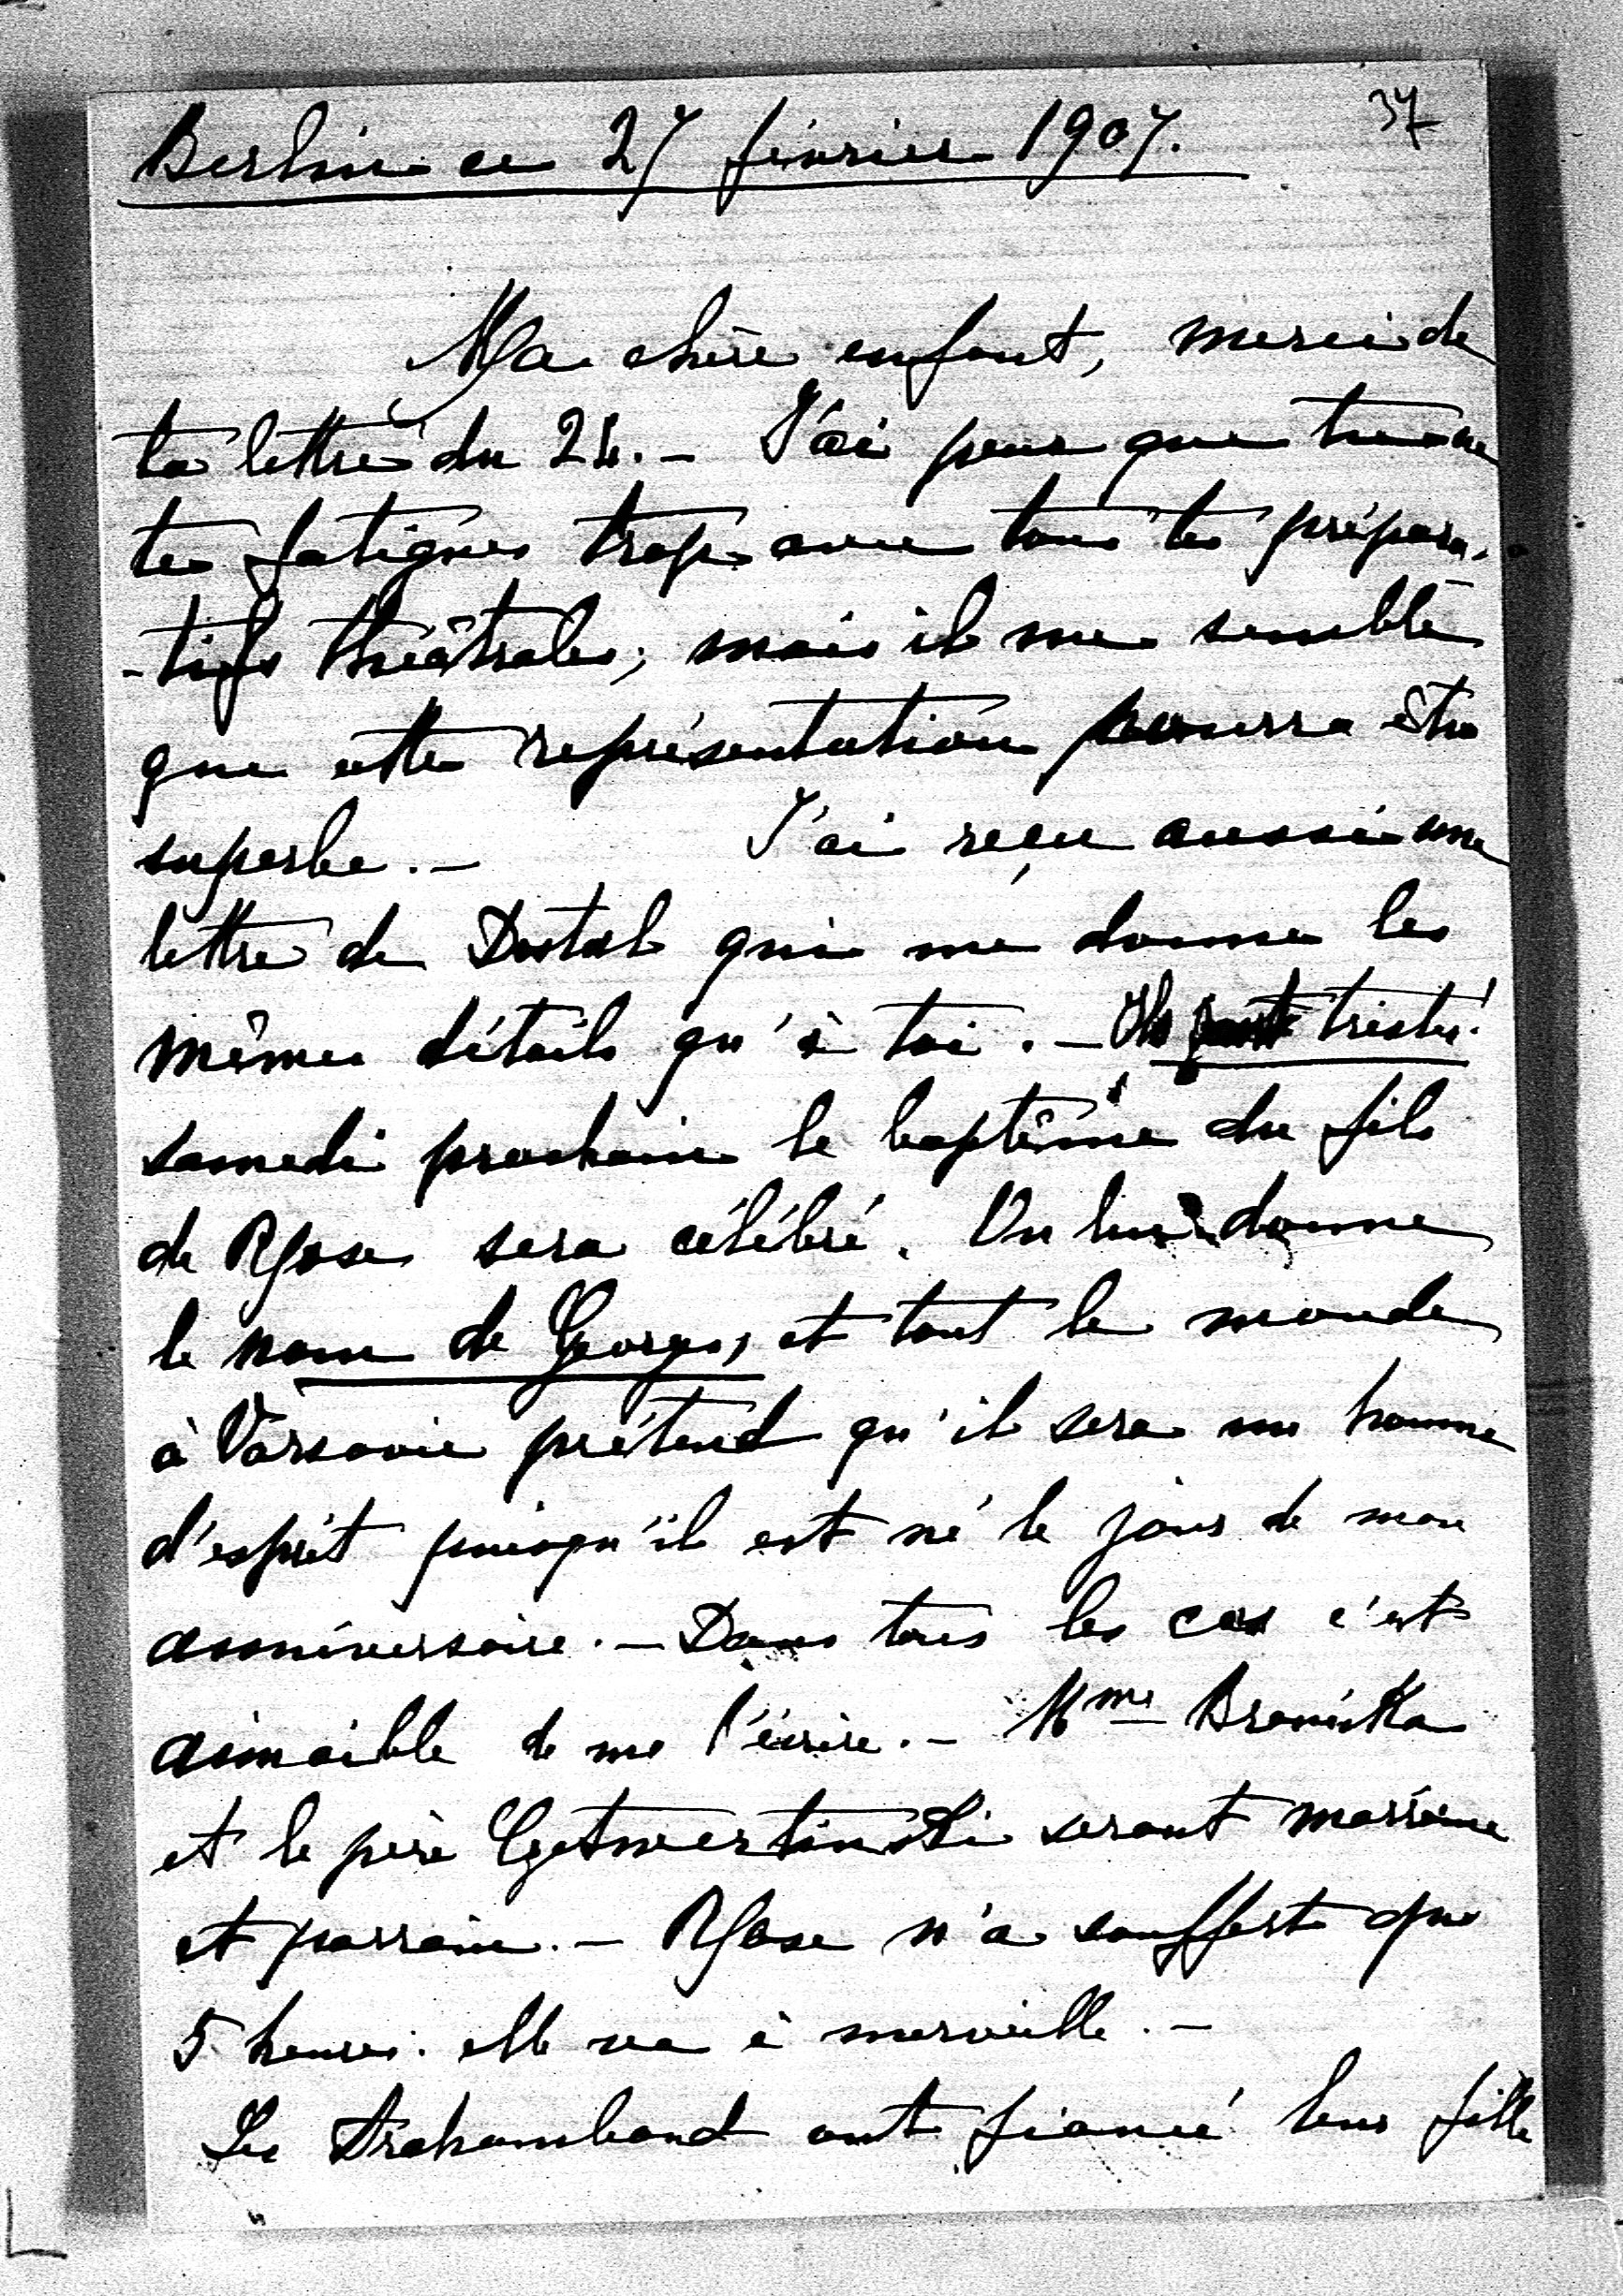 37
Berlin ce 27 février 1907.
Ma chère enfant, merci de
ta lettre du 24. - J'ai peur que tu ne
te fatigues trop avec tous tes prépara-
-tifs théâtrales; mais il me semble
que cette représentation pourra être
superbe. - J'ai reçu aussi une
lettre de Dostal qui me donne les
mêmes détails qu'à toi. - Ils sont tristes!
samedi prochain le baptême du fils
de Rose sera célébré. On lui donne
le nom de Georges, et tout le monde
à Varsovie prétend qu'il sera un homme
d'esprit puisqu'il est né le jour de mon
anniversaire. - Dans tous les cas c'est
aimaible de me l'écrire. - Mme
et le père seront marraine
et parrain. - Rose n'a souffert que
5 heures. elle va à merveille. -
Les ont fiancé leur fille